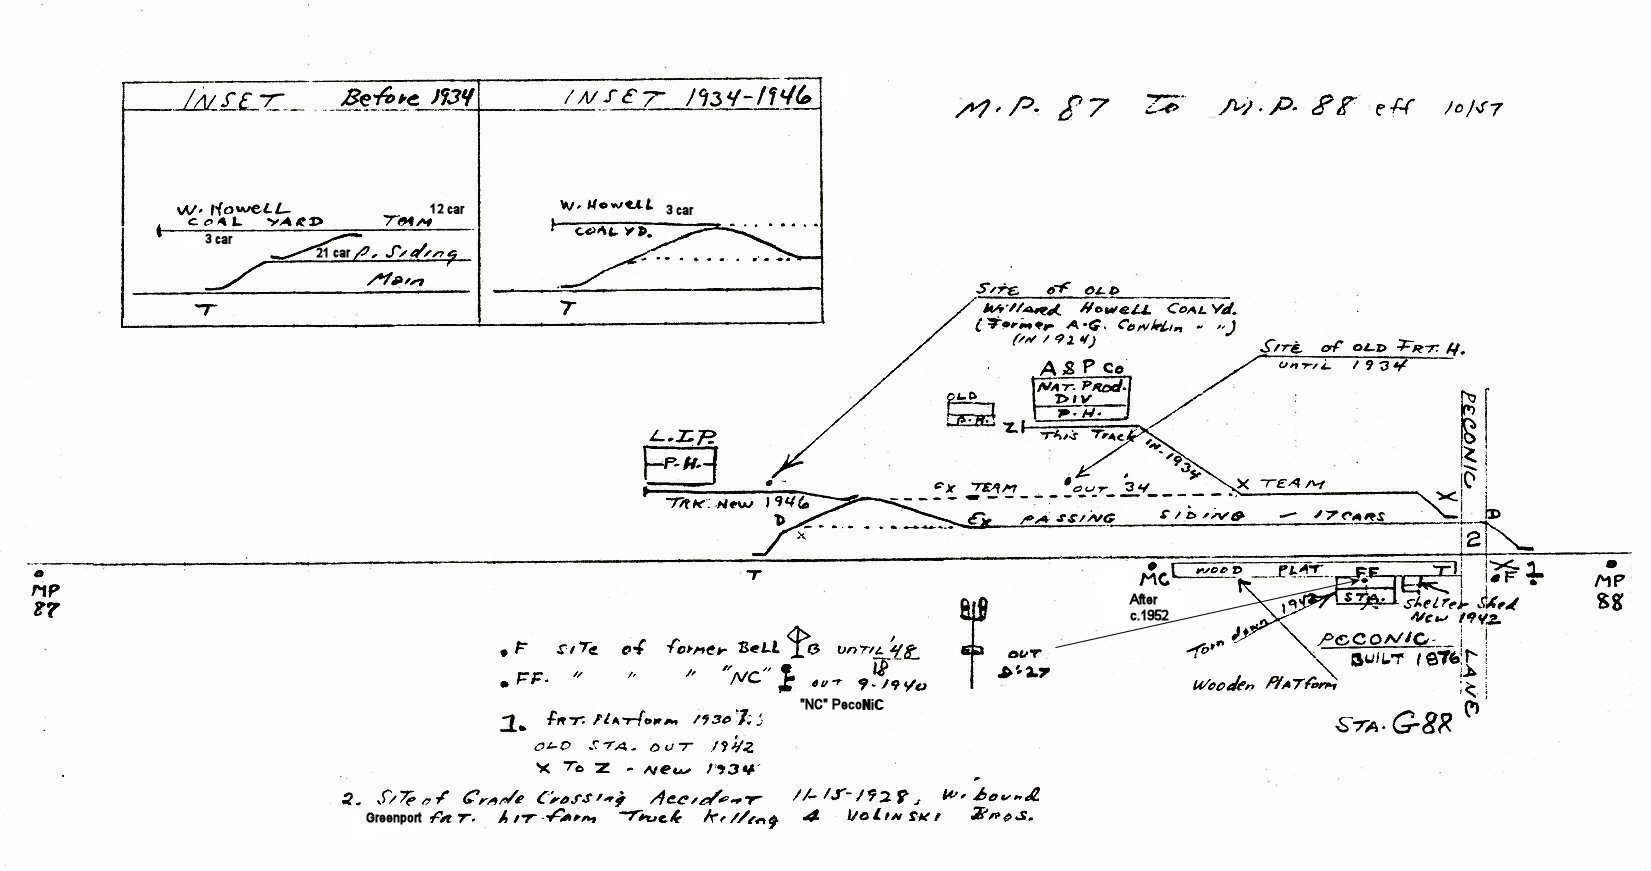 INSET Before 1934
INSET 1934-1946
M.P. 87 To M.P. 88 eff 10/57
W. Howell
COAL YARD
TEAM
12 car
3 car
21 car
P. Siding
Main
T
W. Howell
3 car
COAL YD.
T
SITE of OLD
Willard Howell COAL Yd.
(Former A.G. Conklin " ")
(IN 1924)
SITE of OLD FRT. H.
UNTIL 1934
A S P Co
NAT. PROD.
DIV
P.H.
OLD
P.H.
Z
This Track IN-1934
L.I.P.
P.H.
TRK. New 1946
EX TEAM
OUT '34
X TEAM
X
D
X
EX PASSING SIDING - 17 CARS
D
2
PECONIC
LANE
T
MP
87
MC
After
c.1952
WOOD PLAT
FF
T
STA.
X
F
1
MP
88
Shelter Shed
New 1942
Torn down 1942
PECONIC
BUILT 1876
Wooden PLATform
STA. G88
OUT
D'27
.F SITE of former Bell B UNTIL '48
18
.FF. " " " "NC" OUT 9-1940
"NC" PecoNiC
1. FRT. PLATform 1930
OLD STA. OUT 1942
X To Z - New 1934
2. Site of Grade Crossing Accident 11-15-1928, W. bound
Greenport FRT. hit farm Truck Killing 4 VOLINSKI Bros.